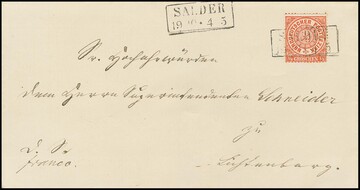 SALDER
19 4-5
Sr. Hochehrwürden
dem Herrn Superintendenten Schneider
zu
Lichtenberg.
franco.